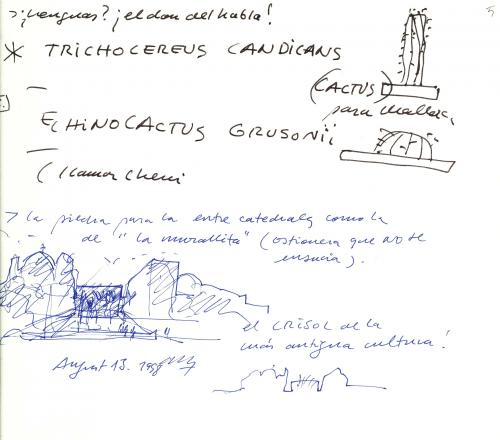 > ¿Lenguas? ¡el don del habla!
* TRICHOCEREUS CANDICANS
(CACTUS)
para
ECHINOCACTUS GRUSONII
(llamar
> la piedra para la entre catedrales como la
de "la murallita" (ostionera que NO se
ensucia).
el CRISOL de la
más antigua cultura!
August 13.